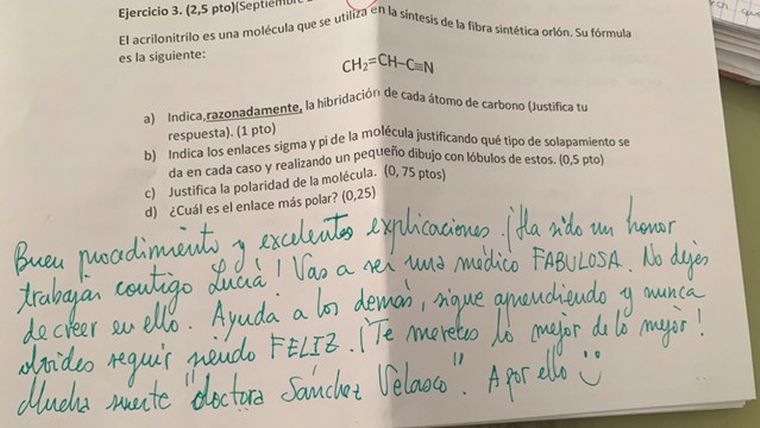 Ejercicio 3. (2,5 pto)(Septiembre
El acrilonitrilo es una molécula que se utiliza en la síntesis de la fibra sintética orlón. Su fórmula
es la siguiente:
CH₂=CH–C≡N
a) Indica, razonadamente, la hibridación de cada átomo de carbono (Justifica tu
respuesta). (1 pto)
b) Indica los enlaces sigma y pi de la molécula justificando qué tipo de solapamiento se
da en cada caso y realizando un pequeño dibujo con lóbulos de estos. (0,5 pto)
c) Justifica la polaridad de la molécula. (0, 75 ptos)
d) ¿Cuál es el enlace más polar? (0,25)
Buen procedimiento y excelentes explicaciones. ¡Ha sido un honor
trabajar contigo Lucía! Vas a ser una médico FABULOSA. No dejes
de creer en ello. Ayuda a los demás, sigue aprendiendo y nunca
olvides seguir siendo FELIZ. ¡Te mereces lo mejor de lo mejor!
Mucha suerte "doctora Sánchez Velasco". A por ello